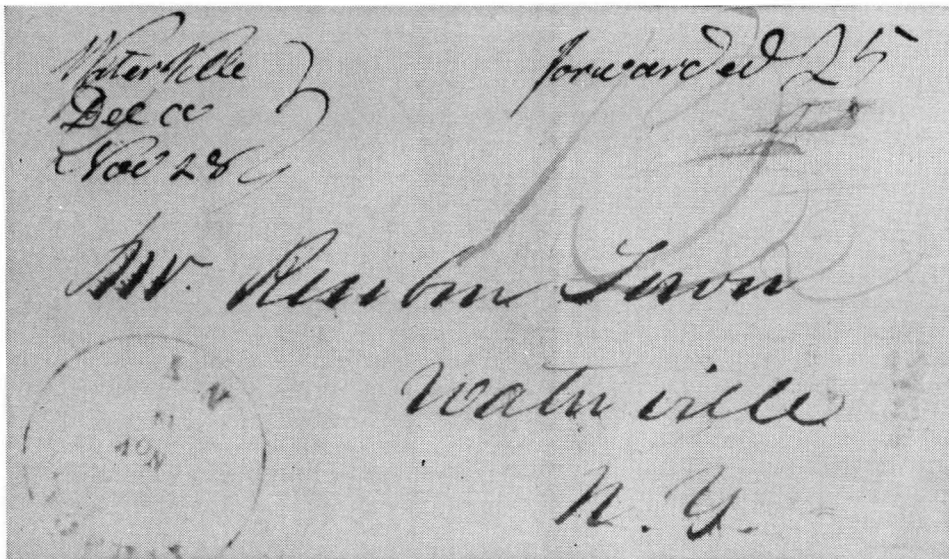 WaterVille
Del co
Nov 28
forwarded 25
Mr. Reuben Town
Waterville
N. Y.
NOV